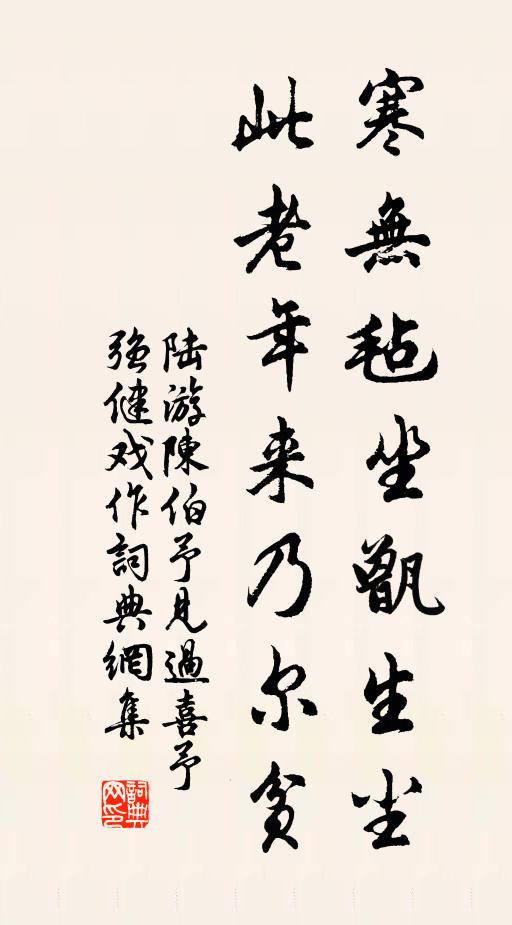 寒無毡坐甑生尘
此老年来乃尔貧
陆游陳伯予見過喜予
强健戏作詞典網集
詞典网印